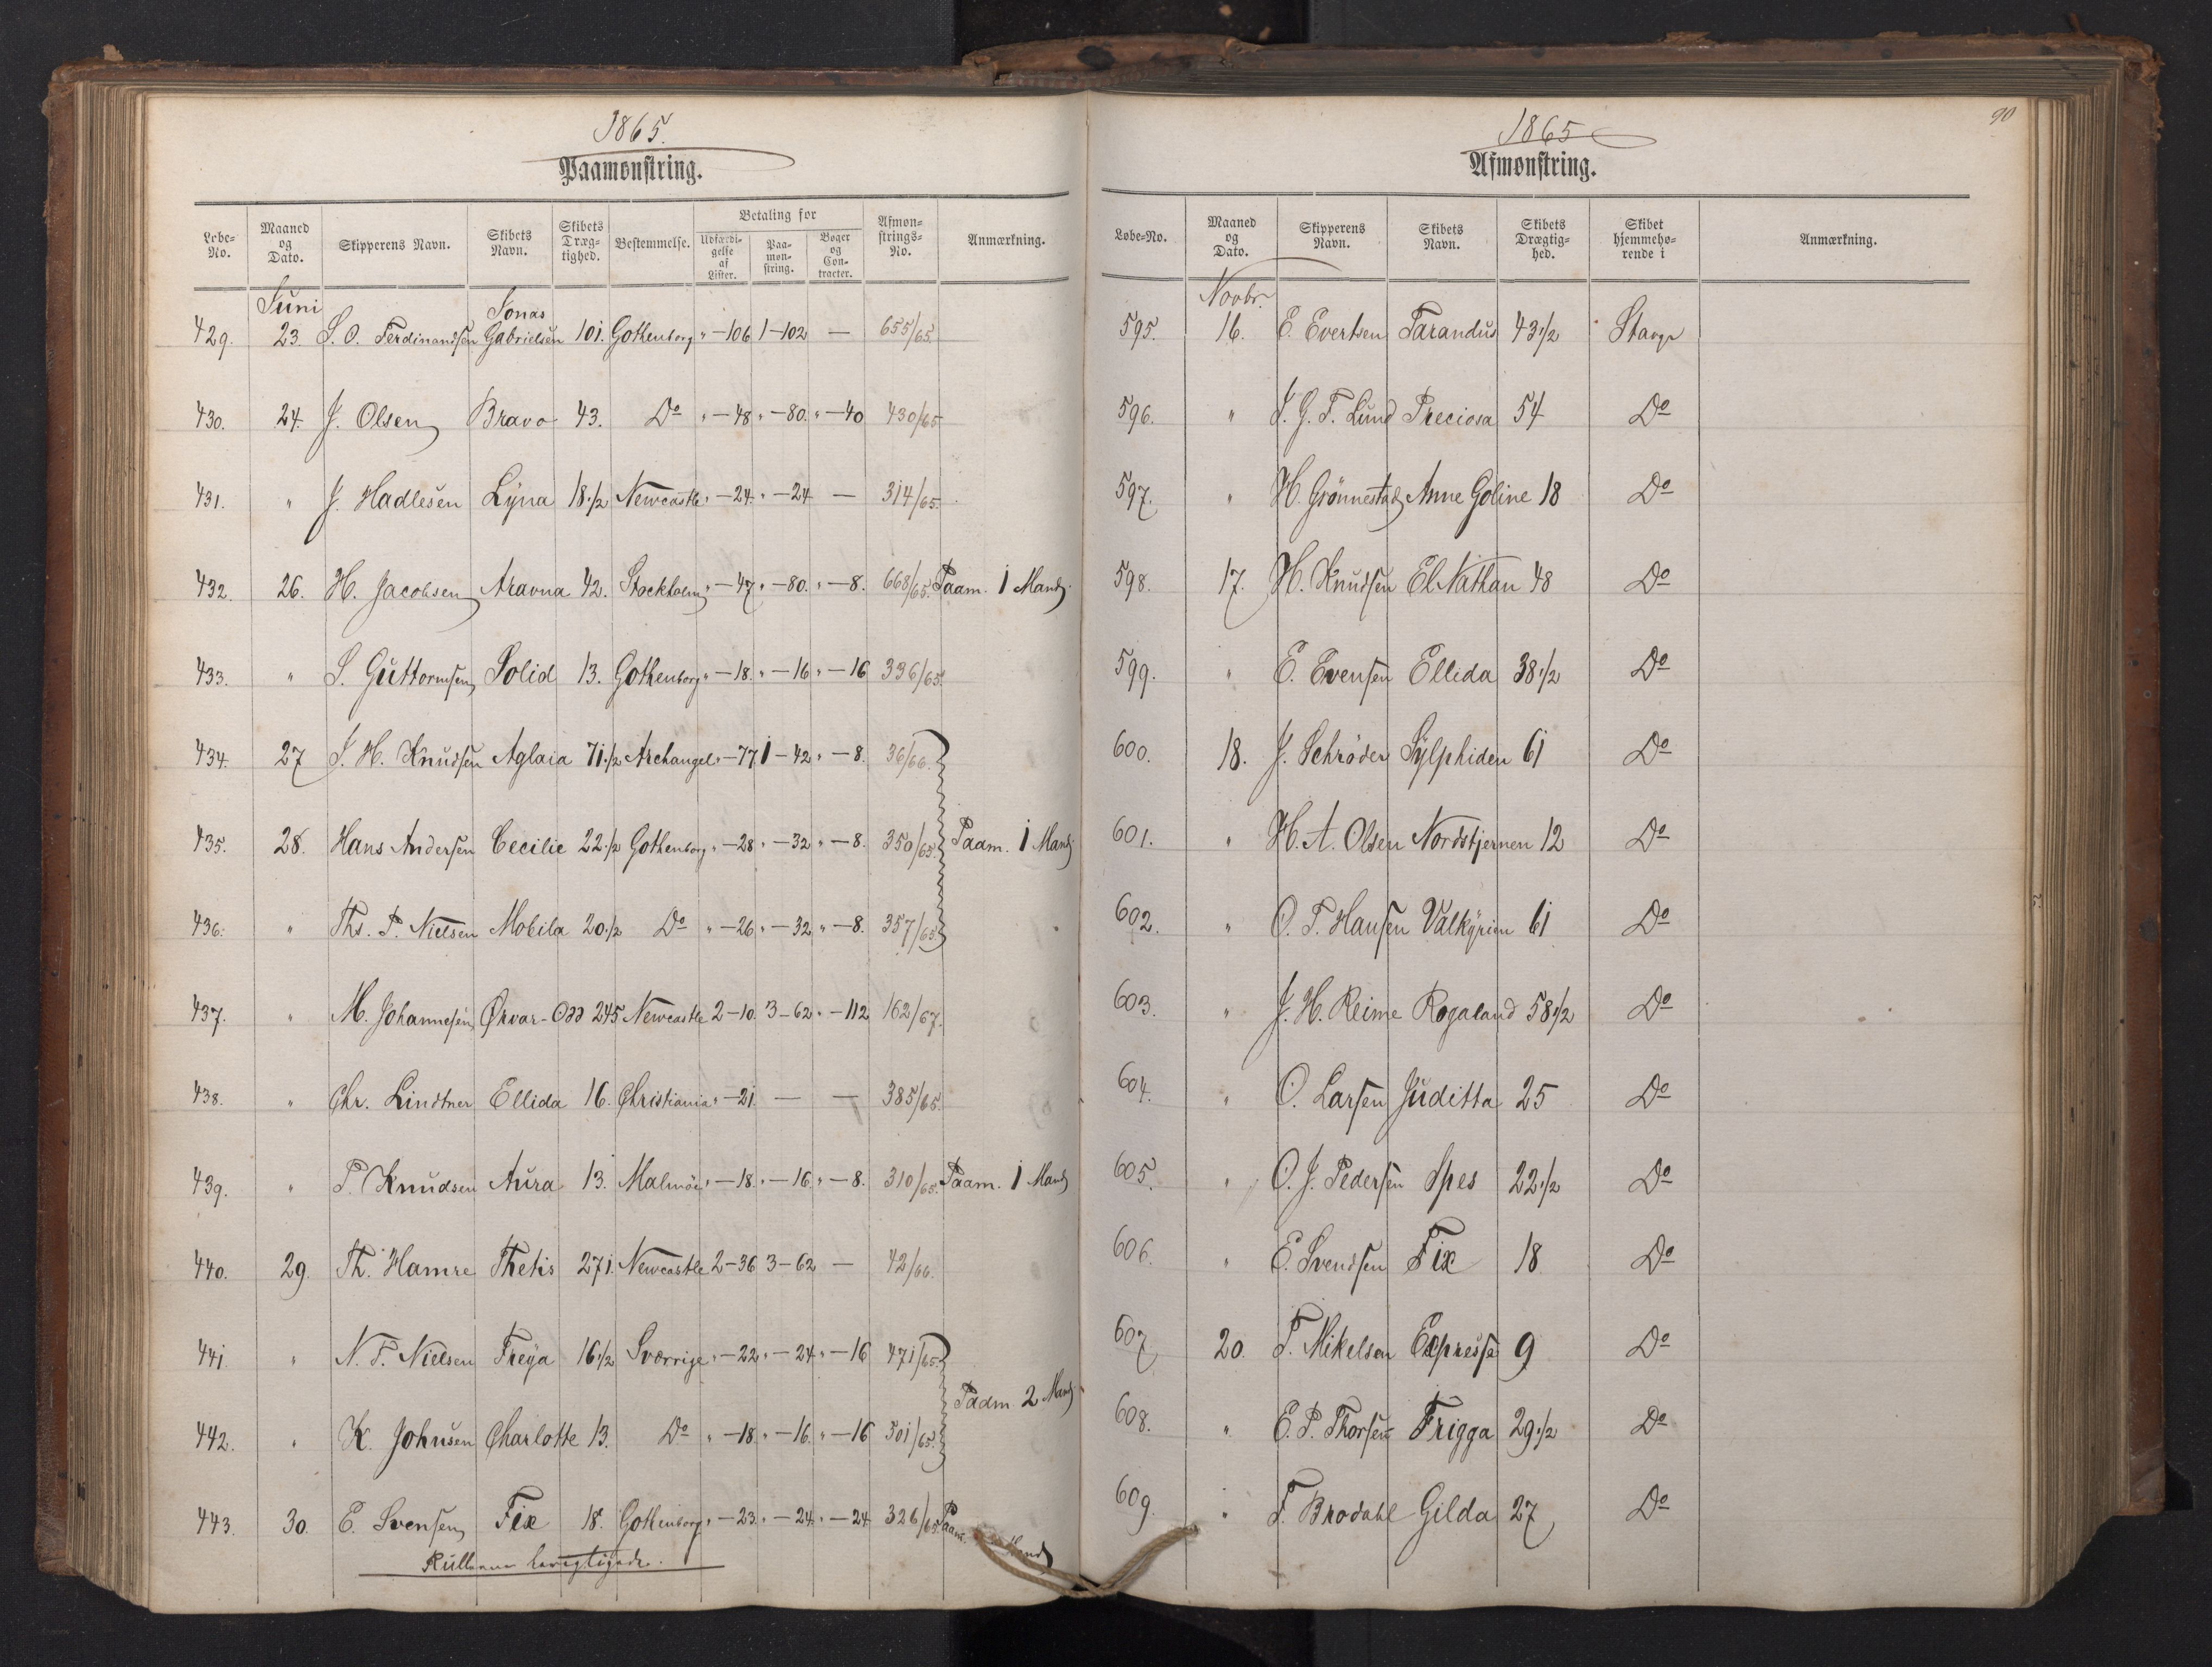 1865.
Paamønstring.
Løbe-No. Maaned og Dato. Skipperens Navn. Skibets Navn. Skibets Dræg-tighed. Bestemmelse. Betaling for Udfærdi-gelse af Lister. Paa-møn-string. Bøger og Con-tracter. Afmøn-strings-No. Anmærkning.
Juni
429. 23. S. O. Ferdinandsen Jonas Gabrielsen 101. Gothenborg " - 106 1 - 102 — 655/65.
430. 24. J. Olsen Bravo 43. Do " - 48 " - 80. " - 40 430/65
431. " J. Hadlesen Lyna 18 1/2 Newcastle " - 24. " - 24 — 314/65.
432. 26. H. Jacobsen Aravna 42. Stockholm " - 47 " - 80. " - 8. 668/65. Paam. 1 Mand
433. " S. Guttormsen Solid 13. Gothenborg " - 18. " - 16 " - 16 336/65.
434. 27 J. H. Knudsen Aglaia 71 1/2 Archangel " - 77 1 - 42 " - 8. 36/66.
435. 28. Hans Andersen Cecilie 22 1/2 Gothenborg " - 28 " - 32 " - 8. 350/65. Paam. 1 Mand
436. " Ths. P. Nielsen Mobila 20 1/2 Do " - 26 " - 32 " - 8. 357/65.
437. " M. Johannesen Ørvar-Odd 245 Newcastle 2 - 10. 3 - 62 " - 112 162/67.
438. " Chr. Lindtner Ellida 16. Christiania " - 21 — — 385/65.
439. " P. Knudsen Aura 13. Malmöe " - 18. " - 16 " - 8. 310/65. Paam. 1 Mand
440. 29. Th. Hamre Thetis 271. Newcastle 2 - 36 3 - 62 — 42/66.
441 " N. F. Nielsen Freya 16 1/2 Sverrige " - 22 " - 24 " - 16 471/65
Paam 2 Mand
442. " K. Johnsen Charlotte 13. Do " - 18. " - 16. " - 16 501/65.
443. 30. E. Svensen Fix 18. Gothenborg " - 23. " - 24. " - 24 326/65 Paam. Mand
1865
90
Afmønstring.
Løbe-No. Maaned og Dato. Skipperens Navn. Skibets Navn. Skibets Drægtig-hed. Skibet hjemmehø-rende i Anmærkning.
Novbr.
595. 16. E. Evertsen Tarandus 43 1/2 Stavgr
596. " J. G. F. Lund Preciosa 54 Do
597. " H. Grönnestad Anne Goline 18 Do
598. 17. H. Knudsen El Nathan 48 Do
599. " E. Evensen Ellida 38 1/2 Do
600. 18. J. Schrøder Sylphiden 61 Do
601. " H. A. Olsen Nordstjernen 12 Do
602. " O. T. Hansen Valkyrien 61 Do
603. " J. H. Reime Rogaland 58 1/2 Do
604. " O. Larsen Juditta 25 Do
605. " O. J. Pedersen Spes 22 1/2 Do
606. " E. Svendsen Fix 18 Do
607 20. T. Mikelsen Expresse 9 Do
608. " E. P. Thorsen Frigga 29 1/2 Do
609. " F. Brodahl Gilda 27 Do